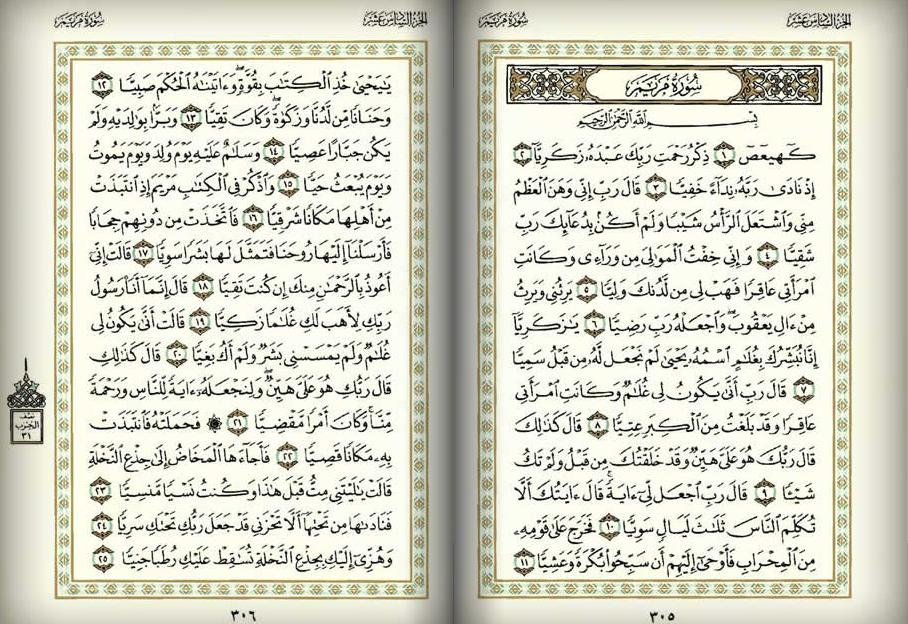 الجزء السادس عشر
سورة مريم
سورة مريم
بسم الله الرحمن الرحيم
كٓهيعٓصٓ ١ ذِكْرُ رَحْمَتِ رَبِّكَ عَبْدَهُۥ زَكَرِيَّآ ٢
إِذْ نَادَىٰ رَبَّهُۥ نِدَآءً خَفِيًّا ٣ قَالَ رَبِّ إِنِّى وَهَنَ ٱلْعَظْمُ
مِنِّى وَٱشْتَعَلَ ٱلرَّأْسُ شَيْبًا وَلَمْ أَكُنۢ بِدُعَآئِكَ رَبِّ
شَقِيًّا ٤ وَإِنِّى خِفْتُ ٱلْمَوَٰلِىَ مِن وَرَآءِى وَكَانَتِ
ٱمْرَأَتِى عَاقِرًا فَهَبْ لِى مِن لَّدُنكَ وَلِيًّا ٥ يَرِثُنِى وَيَرِثُ
مِنْ ءَالِ يَعْقُوبَ ۖ وَٱجْعَلْهُ رَبِّ رَضِيًّا ٦ يَٰزَكَرِيَّآ
إِنَّا نُبَشِّرُكَ بِغُلَٰمٍ ٱسْمُهُۥ يَحْيَىٰ لَمْ نَجْعَل لَّهُۥ مِن قَبْلُ سَمِيًّا
٧ قَالَ رَبِّ أَنَّىٰ يَكُونُ لِى غُلَٰمٌ وَكَانَتِ ٱمْرَأَتِى
عَاقِرًا وَقَدْ بَلَغْتُ مِنَ ٱلْكِبَرِ عِتِيًّا ٨ قَالَ كَذَٰلِكَ
قَالَ رَبُّكَ هُوَ عَلَىَّ هَيِّنٌ وَقَدْ خَلَقْتُكَ مِن قَبْلُ وَلَمْ تَكُ
شَيْـًٔا ٩ قَالَ رَبِّ ٱجْعَل لِّىٓ ءَايَةً ۚ قَالَ ءَايَتُكَ أَلَّا
تُكَلِّمَ ٱلنَّاسَ ثَلَٰثَ لَيَالٍ سَوِيًّا ١٠ فَخَرَجَ عَلَىٰ قَوْمِهِۦ
مِنَ ٱلْمِحْرَابِ فَأَوْحَىٰٓ إِلَيْهِمْ أَن سَبِّحُوا۟ بُكْرَةً وَعَشِيًّا ١١
٣٠٥
الجزء السادس عشر
سورة مريم
يَٰيَحْيَىٰ خُذِ ٱلْكِتَٰبَ بِقُوَّةٍ ۖ وَءَاتَيْنَٰهُ ٱلْحُكْمَ صَبِيًّا ١٢
وَحَنَانًا مِّن لَّدُنَّا وَزَكَوٰةً ۖ وَكَانَ تَقِيًّا ١٣ وَبَرًّۢا بِوَٰلِدَيْهِ وَلَمْ
يَكُن جَبَّارًا عَصِيًّا ١٤ وَسَلَٰمٌ عَلَيْهِ يَوْمَ وُلِدَ وَيَوْمَ يَمُوتُ
وَيَوْمَ يُبْعَثُ حَيًّا ١٥ وَٱذْكُرْ فِى ٱلْكِتَٰبِ مَرْيَمَ إِذِ ٱنتَبَذَتْ
مِنْ أَهْلِهَا مَكَانًا شَرْقِيًّا ١٦ فَٱتَّخَذَتْ مِن دُونِهِمْ حِجَابًا
فَأَرْسَلْنَآ إِلَيْهَا رُوحَنَا فَتَمَثَّلَ لَهَا بَشَرًا سَوِيًّا ١٧ قَالَتْ إِنِّىٓ
أَعُوذُ بِٱلرَّحْمَٰنِ مِنكَ إِن كُنتَ تَقِيًّا ١٨ قَالَ إِنَّمَآ أَنَا۠ رَسُولُ
رَبِّكِ لِأَهَبَ لَكِ غُلَٰمًا زَكِيًّا ١٩ قَالَتْ أَنَّىٰ يَكُونُ لِى
غُلَٰمٌ وَلَمْ يَمْسَسْنِى بَشَرٌ وَلَمْ أَكُ بَغِيًّا ٢٠ قَالَ كَذَٰلِكِ
قَالَ رَبُّكِ هُوَ عَلَىَّ هَيِّنٌ ۖ وَلِنَجْعَلَهُۥٓ ءَايَةً لِّلنَّاسِ وَرَحْمَةً
مِّنَّا ۚ وَكَانَ أَمْرًا مَّقْضِيًّا ٢١ ۞ فَحَمَلَتْهُ فَٱنتَبَذَتْ
بِهِۦ مَكَانًا قَصِيًّا ٢٢ فَأَجَآءَهَا ٱلْمَخَاضُ إِلَىٰ جِذْعِ ٱلنَّخْلَةِ
قَالَتْ يَٰلَيْتَنِى مِتُّ قَبْلَ هَٰذَا وَكُنتُ نَسْيًا مَّنسِيًّا ٢٣
فَنَادَىٰهَا مِن تَحْتِهَآ أَلَّا تَحْزَنِى قَدْ جَعَلَ رَبُّكِ تَحْتَكِ سَرِيًّا ٢٤
وَهُزِّىٓ إِلَيْكِ بِجِذْعِ ٱلنَّخْلَةِ تُسَٰقِطْ عَلَيْكِ رُطَبًا جَنِيًّا ٢٥
نصف
الحزب
٣١
٣٠٦